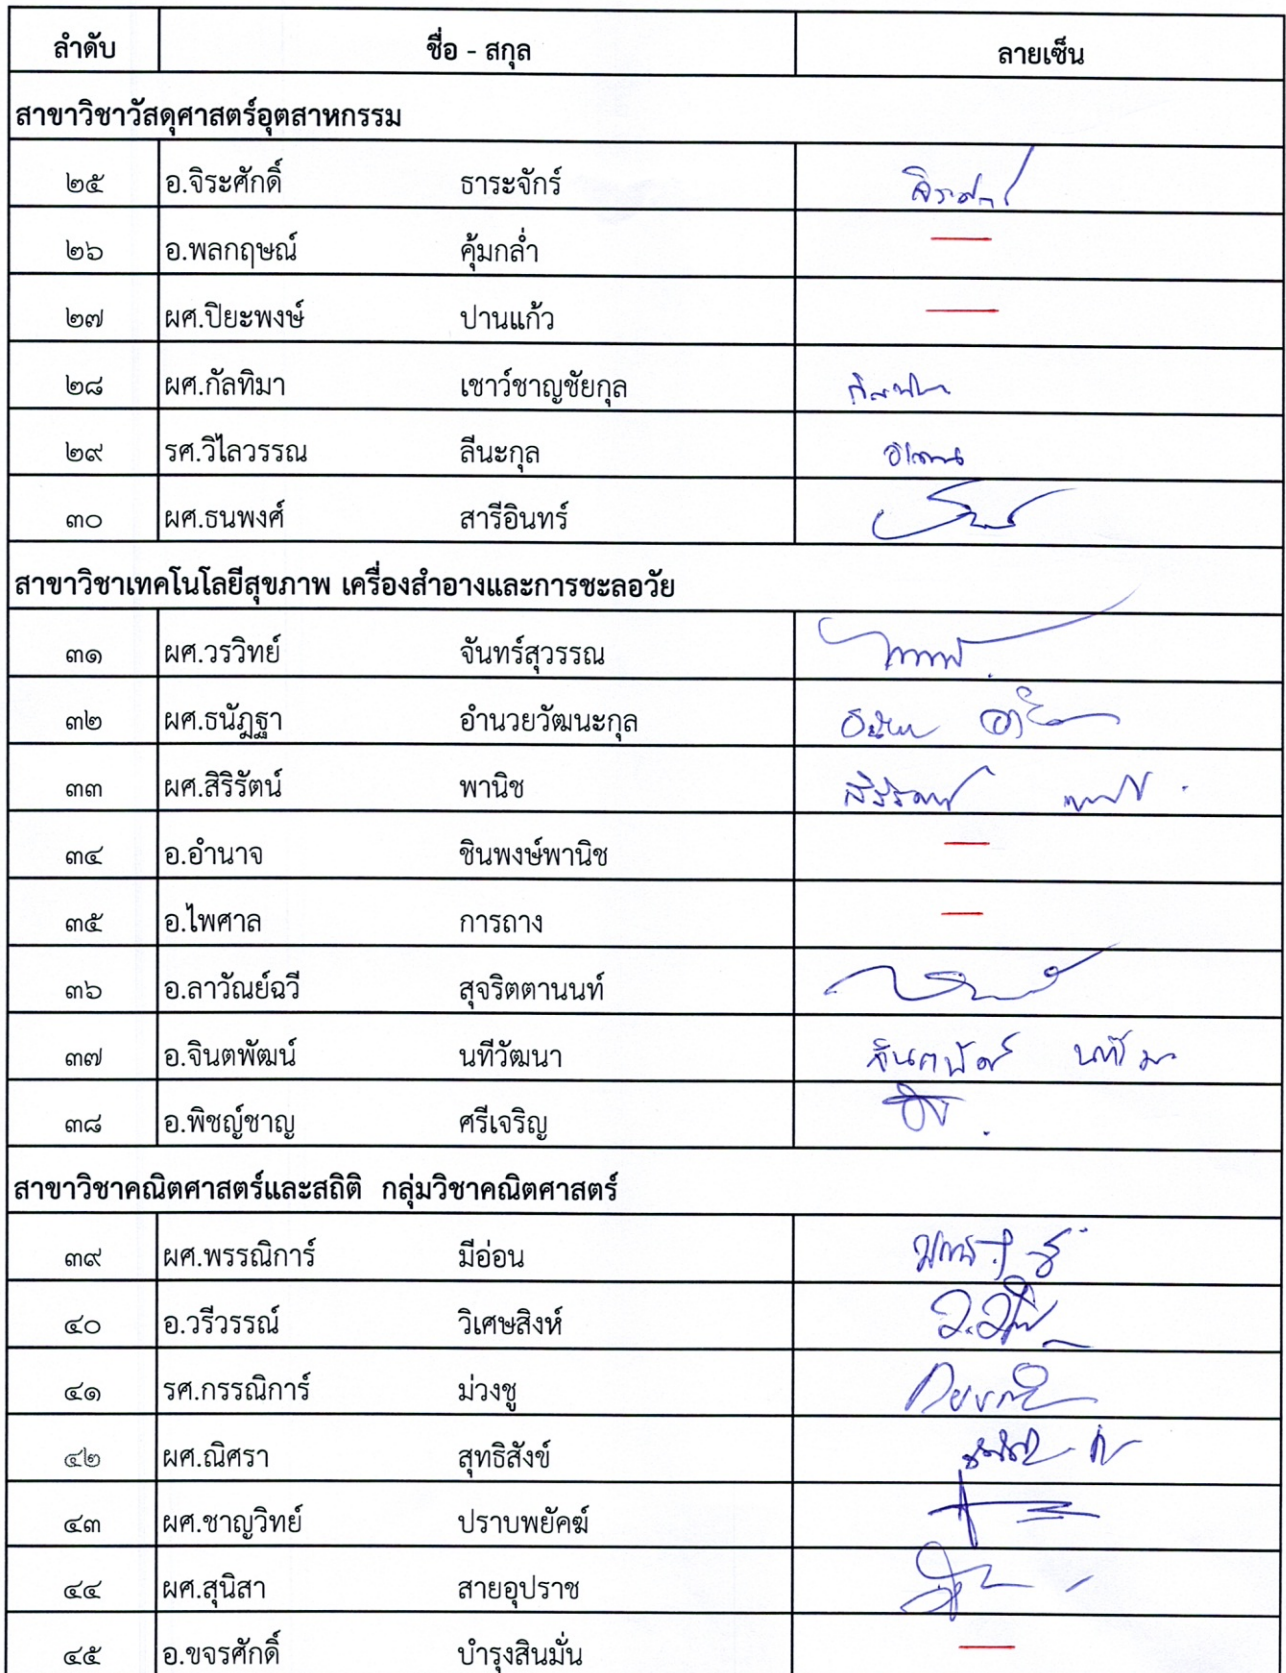 ลำดับ ชื่อ - สกุล ลายเซ็น
สาขาวิชาวัสดุศาสตร์อุตสาหกรรม
๒๕ อ.จิระศักดิ์ ธาระจักร์ จิระศักดิ์
๒๖ อ.พลกฤษณ์ คุ้มกล่ำ —
๒๗ ผศ.ปิยะพงษ์ ปานแก้ว —
๒๘ ผศ.กัลทิมา เชาว์ชาญชัยกุล กัลทิมา
๒๙ รศ.วิไลวรรณ ลีนะกุล
๓๐ ผศ.ธนพงศ์ สารีอินทร์
สาขาวิชาเทคโนโลยีสุขภาพ เครื่องสำอางและการชะลอวัย
๓๑ ผศ.วรวิทย์ จันทร์สุวรรณ
๓๒ ผศ.ธนัฏฐา อำนวยวัฒนะกุล
๓๓ ผศ.สิริรัตน์ พานิช สิริรัตน์
๓๔ อ.อำนาจ ชินพงษ์พานิช —
๓๕ อ.ไพศาล การถาง —
๓๖ อ.ลาวัณย์ฉวี สุจริตตานนท์
๓๗ อ.จินตพัฒน์ นทีวัฒนา จินตพัฒน์
๓๘ อ.พิชญ์ชาญ ศรีเจริญ
สาขาวิชาคณิตศาสตร์และสถิติ กลุ่มวิชาคณิตศาสตร์
๓๙ ผศ.พรรณิการ์ มีอ่อน
๔๐ อ.วรีวรรณ์ วิเศษสิงห์
๔๑ รศ.กรรณิการ์ ม่วงชู
๔๒ ผศ.ณิศรา สุทธิสังข์
๔๓ ผศ.ชาญวิทย์ ปราบพยัคฆ์
๔๔ ผศ.สุนิสา สายอุปราช
๔๕ อ.ขจรศักดิ์ บำรุงสินมั่น —